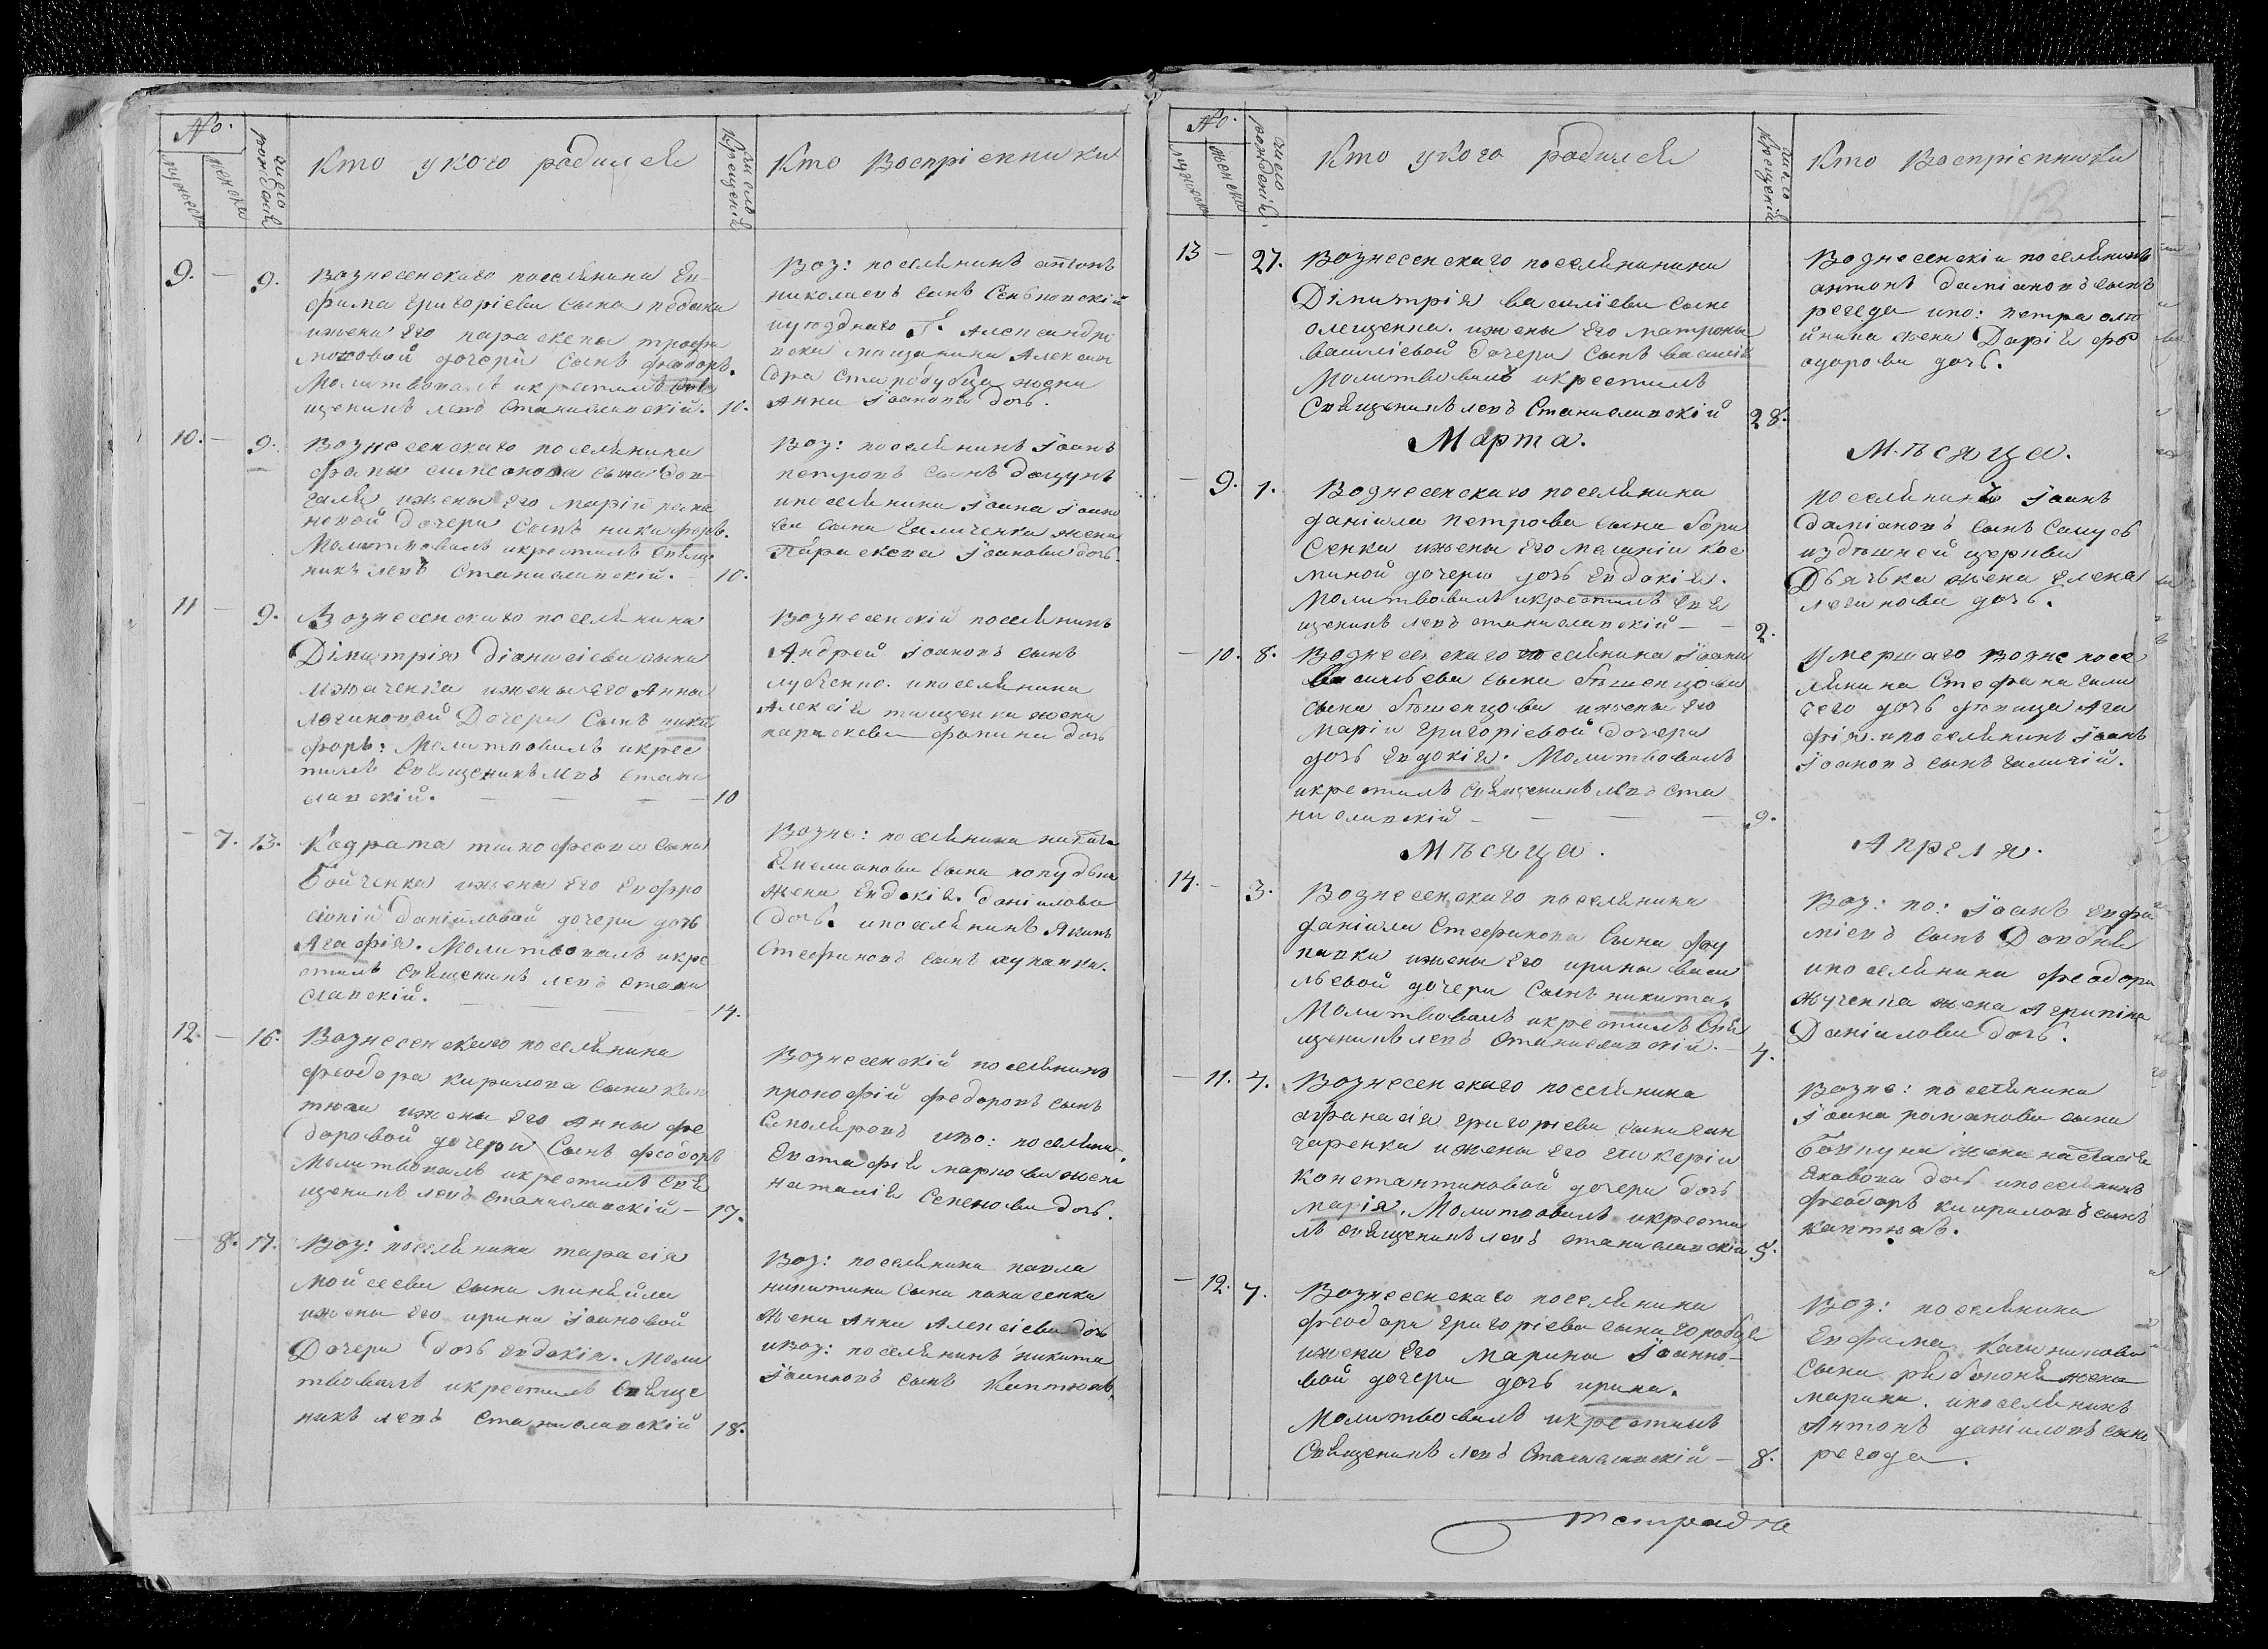 №.
мужеска
женска
число рожденій
Кто у кого родился
число Крещеній
Кто Воспріемники
9. — 9.
Вознесенскаго поселянина Ев-
фима григоріева сына
ижены его параскевы трофи
мовой дочери сынъ феодоръ.
Молитвовалъ икрестилъ Свя
щеникъ левъ Станиславскій. 10.
Воз: поселянинъ антонъ
николаевъ сынъ
иуезднаго Г. Александрі
мещанина Алексан
дра Стародубца жена
Анна Іоанова дочь.
10. — 9.
Вознесенскаго поселянина
фомы симеонова сына Дов-
галя ижены его маріи рома
новой дочери сынъ никифоръ.
Молитвовалъ икрестилъ Свяще
никъ левъ Станиславскій. — 10.
Воз: поселянинъ Іоанъ
петровъ сынъ
ипоселянина Іоана Іоано
ва сына Галиченка жена
Параскева Іоанова дочь.
11 — 9.
Вознесенскаго поселянина
Дімитрія діонисіева сына
ижены его Анны
логиновой Дочери Сынъ ники
форъ: Молитвовалъ икрес
тилъ Священикъ левъ Стани
славскій. — — — 10
Вознесенскій поселянинъ
Андрей Іоановъ сынъ
ипоселянина
Алексія тищенка жена
параскева фомина дочь
— 7. 13.
Кодрата тимофеева сына
Бойченка ижены его Евфро
сініи даніиловой дочери дочь
Агафія. Молитвовалъ икре
стилъ Священикъ левъ Стани
славскій. — — — 14.
Возне: поселянина никиты
сына
жена Евдокія даніилова
дочь. ипоселянинъ Якимъ
Стефановъ сынъ
12. — 16.
Вознесенскаго поселянина
феодора кирилова сына Кап
тюха ижены его Анны фе
доровой дочери Сынъ феодоръ
Молитвовалъ икрестилъ Свя
щеникъ левъ Станиславскій — 17.
Вознесенскій поселянинъ
прокофій федоровъ сынъ
иво: поселяни.
Евстафія жена
наталія Семенова дочь.
— 8. 17.
Воз: поселянина тарасія
мойсеева сына
ижены его ирины Іоановой
Дочери дочь евдокія. Моли
твовалъ икрестилъ Свяще
никъ левъ Станиславскій 18.
Воз: поселянина павла
никитина сына панасенка
жена Анна Алексіева дочь
ивоз: поселянинъ никита
Іоанновъ сынъ
№.
мужеска
женска
число рожденій
Кто у кого родился
число Крещеній
Кто Воспріемники
13 — 27.
Вознесенскаго поселянинина
Дімитрія василіева сына
олещенка. ижены его матроны
василіевой дочери сынъ василій
Молитвовалъ икрестилъ
Священикъ левъ Станиславскій 28.
Вознесенскій поселянинъ
антонъ даміановъ сынъ
регеда иво: петра
жена Дарія фео
одорова дочь.
Марта.
Мѣсяца.
— 9. 1.
Вознесенскаго поселянина
даніила петрова сына бори
Сенка ижены его меланіи кос
миной дочери дочь Евдокія.
Молитвовалъ икрестилъ Свя
щеникъ левъ Станиславскій — — 2.
поселянинъ Іоанъ
даміановъ сынъ Самусь
издѣшней церкви
Дьячька жена Елена
логинова дочь.
— 10. 8.
Вознесенскаго поселянина Іоана
Васильева сына
сына ижены его
Маріи григоріевой дочери
дочь евдокія. Молитвовалъ
икрестилъ Священикъ левъ Ста
ниславскій — — — 9.
Умершаго Возне посе
лянина Стефана гали
чего дочь дѣвица Ага
фія. ипоселянинъ Іоанъ
Іоановъ сынъ галичій.
Мѣсяца.
Апреля.
14. — 3.
Вознесенскаго поселянина
даніила Стефанова Сына
ижены его ирины васи
льевой дочери Сынъ никита.
Молитвовалъ икрестилъ Свя
щеникъ левъ Станиславскій. — 4.
Воз: по: Іоанъ Евфи
міевъ сынъ Довбня
ипоселянина феодора
жученка жена Агрипина
Даніилова дочь.
— 11. 4.
Вознесенскаго поселянина
афанасія григоріева сына Ган
чаренка ижены его гликеріи
Константиновой дочери дочь
марія. Молитвовалъ икрести
лъ священикъ левъ Станиславскій 5.
Возне: поселянина
Іоана романова сына
жена настасія
Яковова дочь ипоселянинъ
феодоръ кириловъ сынъ
каптюхъ.
— 12. 7.
Вознесенскаго поселянина
феодора григоріева сына горобця
ижены его Марины Іоанно-
вой дочери дочь ирина.
Молитвовалъ икрестилъ
Священикъ левъ Станиславскій — 8.
Воз: поселянина
Евфима Калиникова
сына жена
марина. ипоселянинъ
Антонъ даніиловъ сынъ
регеда.